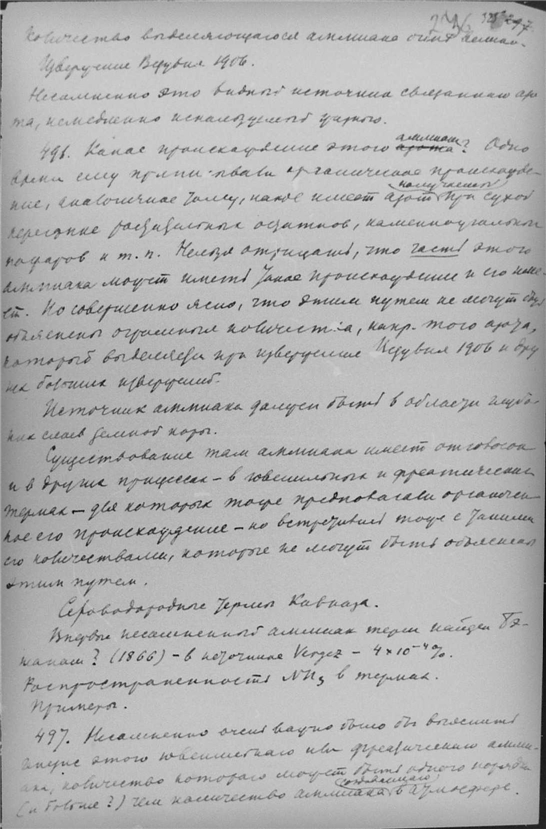 276 297.
количество выделяющагося аммиака очень
Извержение Везувия 1906.
Несомненно это видный источник связаннаго азо-
та, немедленно используемый
496. Какое происхождение этого аммиака азота? Одно
время ему приписывали органическое происхожде-
ние, аналогичное тому, какое имеет азот получаемый при сухой
перегонке остатков, каменноугольных
пожаров и т. п. Нельзя отрицать, что часть этого
аммиака может иметь такое происхождение и его
Но совершенно ясно, что этим путем не могут быть
объяснены огромныя количества, напр. того азота,
который выделялся при извержении Везувия 1906 и дру-
гих больших извержений.
Источник аммиака должен быть в области глубо-
ких слоев земной коры.
Существование там аммиака имеет отголоски
и в других процессах – в ювенильных и фреатических
термах – для которых тоже предполагали органичес-
кое его происхождение – но встретились тоже с такими
его количествами, которые не могут быть объяснены
этим путем.
Сероводородные термы Кавказа.
Впервые несомненный аммиак терм найден
? (1866) – в источнике – 4×10⁻⁴%.
Распространенность NH₃ в термах.
Примеры.
497. Несомненно очень важно было бы выяснить
генезис этого ювенильнаго или фреатическаго амми-
ака, количество котораго может быть одного порядка
(и больше?) чем количество аммиака в атмосфере.